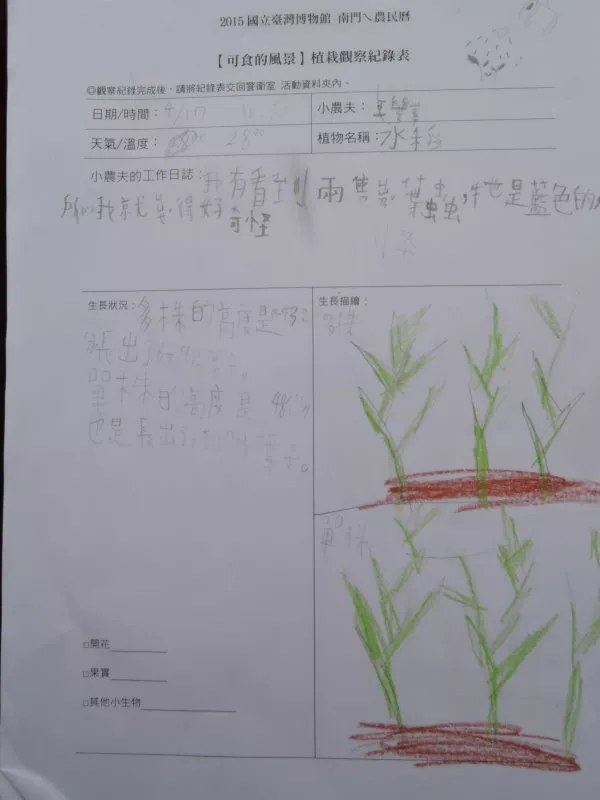 2015 國立臺灣博物館 南門ㄟ農民曆
【可食的風景】植栽觀察紀錄表
◎觀察紀錄完成後,請將紀錄表交回警衛室 活動資料夾內。
日期/時間:4/17
小農夫:
天氣/溫度: 28°
植物名稱:水稻
小農夫的工作日誌:我有看到兩隻 葉虫虫,牠也是藍色的,
所以我就覺得好奇怪
生長狀況:多株的高度是
長出了 葉子。
單株的高度是 48
也是長出 葉子。
生長描繪:
多株
單株
□開花
□果實
□其他小生物